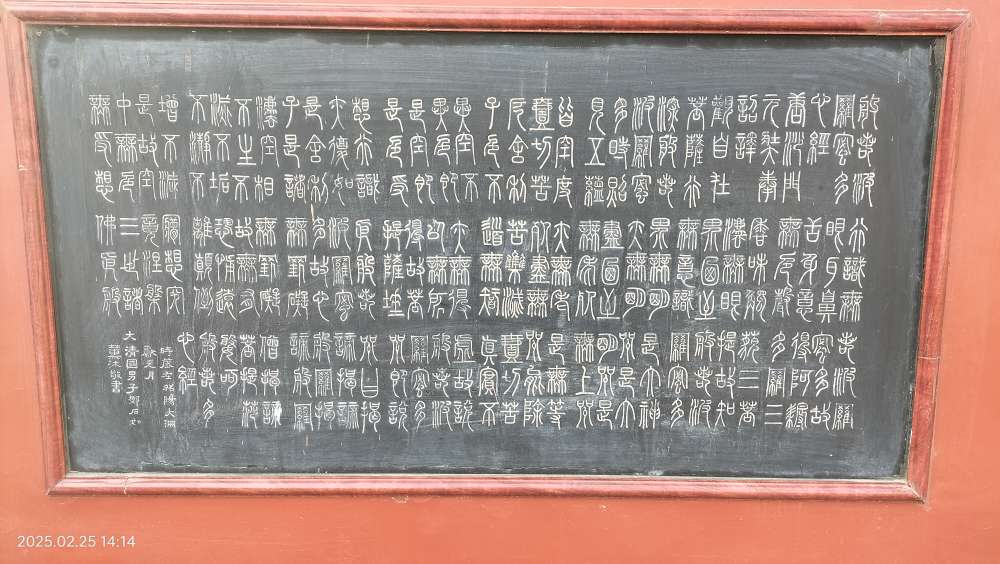 般若波
羅蜜多
心經
唐沙門
元奘奉
詔譯
觀自在
菩薩行
深般若
波羅蜜
多時照
見五蘊
皆空度
壹切苦
厄舍利
子色不
異空空不
異色色即
是空空即
是色受
想行識
亦復如
是舍利
子是諸
法空相
不生不
滅不垢
不淨不
增不減
是故空
中無色
無受想
行識無
眼耳鼻
舌身意
無色聲
香味觸
法無眼
界乃至
無意識
界無無明
亦無無明
盡乃至
無老死
亦無老
死盡無
苦集滅
道無智
亦無得
以無所
得故菩
提薩埵
依般若
波羅蜜
多故心
無罣礙
無罣礙
故無有
恐怖遠
離顛倒
夢想究
竟涅槃
三世諸
佛依般
若波羅
蜜多故
得阿耨
多羅三
藐三菩
提故知
般若波
羅蜜多
是大神
咒是大
明咒是
無上咒
是無等等
咒能除
壹切苦
真實不
虛故說
般若波
羅蜜多
咒即說
咒曰揭
諦揭諦
般羅揭
諦般羅
僧揭諦
菩提薩
婆訶
般若多
心經
大清國男子鄧石如
薰沐敬書
2025.02.25 14:14